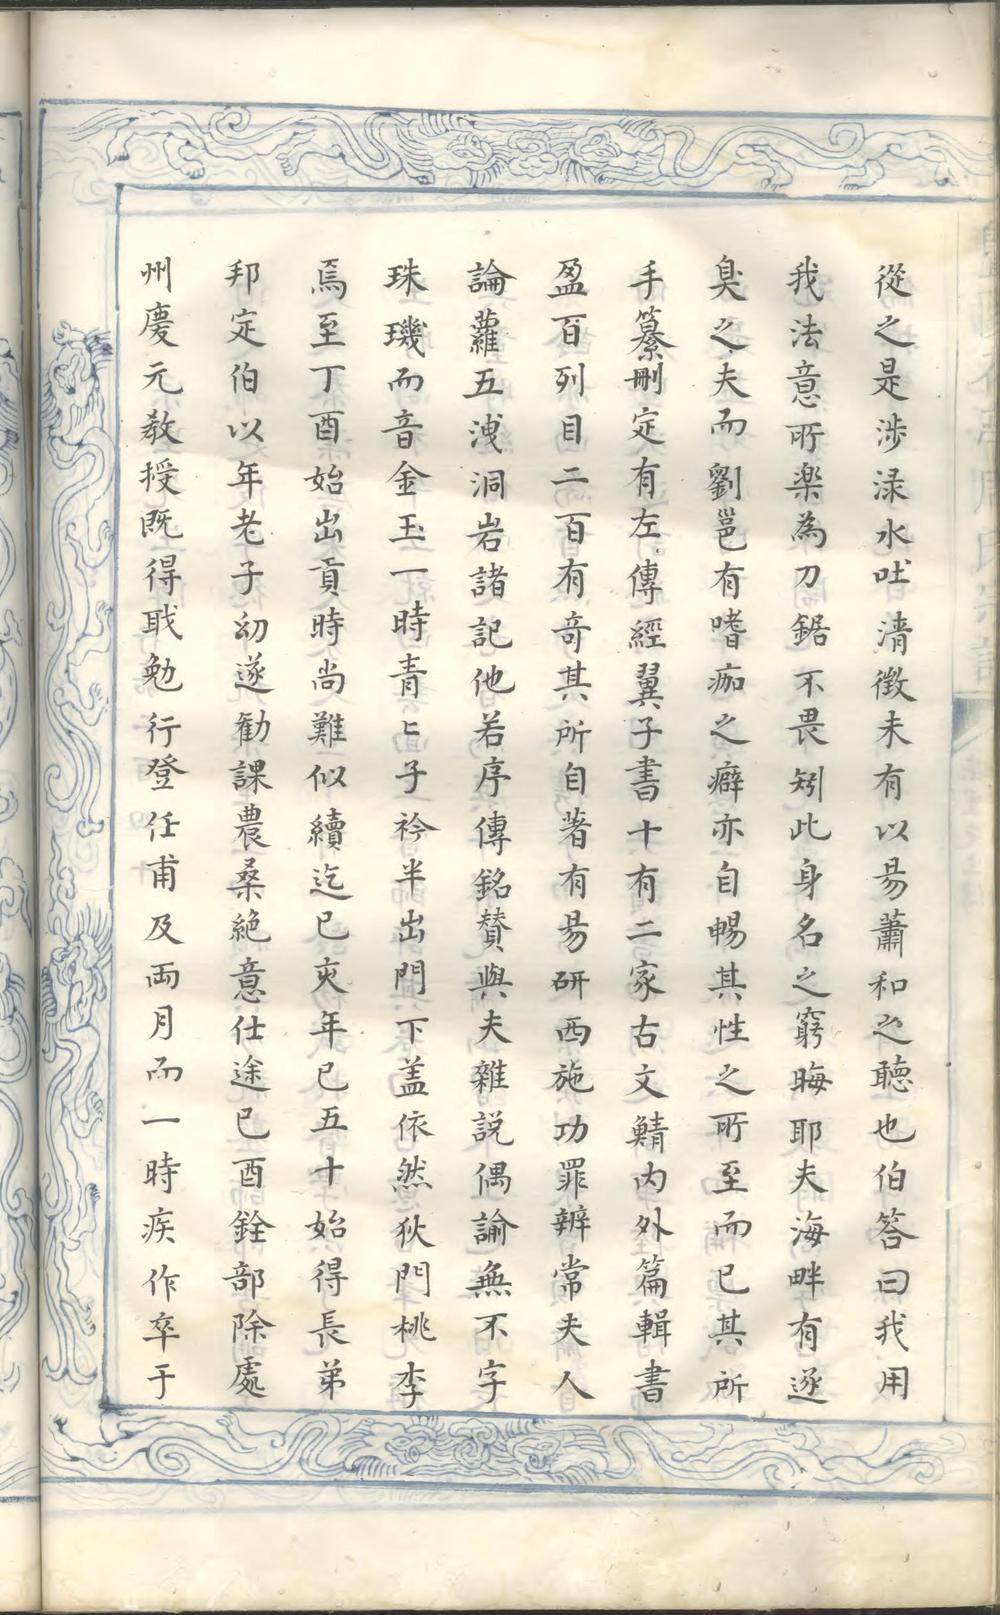 從之是涉渌水吐清徵未有以易蕭和之聽也伯答曰我用
我法意所楽為刀鋸不畏矧此身名之窮晦耶夫海畔有逐
臭之夫而劉邕有嗜痂之癖亦自暢其性之所至而已其所
手纂刪定有左傳經翼子書十有二家古文鯖内外篇輯書
盈百列目二百有奇其所自著有易研西施功罪辨常夫人
論蘿五洩洞岩諸記他若序傳銘賛與夫雜説偶諭無不字
珠璣而音金玉一時青〻子衿半出門下盖依然狄門桃李
焉至丁酉始出貢時尚難似續迄已亥年已五十始得長弟
邦定伯以年老子幼遂勸課農桑絶意仕途已酉銓部除處
州慶元教授既得耿勉行登任甫及兩月而一時疾作卒于